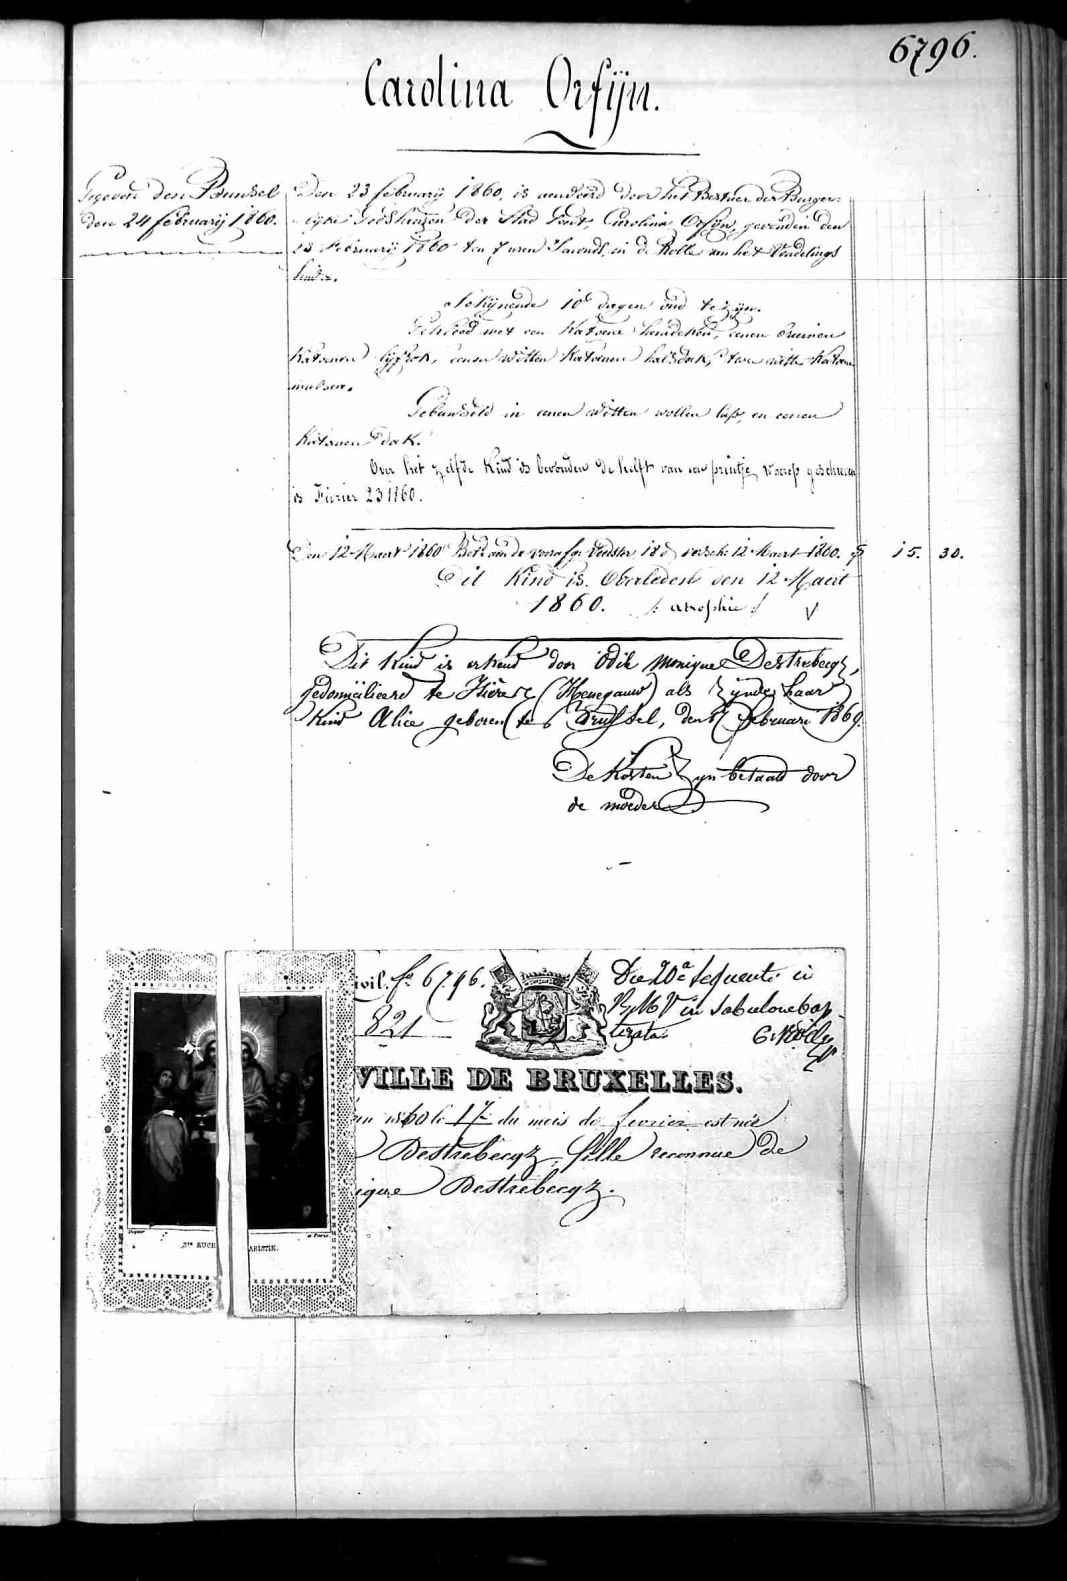 6796.
Carolina Orfijn.
Gegeven den Bundsel
den 24 februarij 1860.
Den 23 februarij 1860, is aenveerd door het Bestuer der Burger-
lijke Godshuizen der Stad Gent, Carolina Orfijn, gevonden den
23 februarij 1860 ten 7 uren s'avonds, in de Rolle van het Vondelings
huis.
Schijnende 10 dagen oud te zijn.
Gekleed met een katoene hemdeken, eenen bruinen
katoenen lijfrok, eenen witten katoenen halsdoek, twee witte katoene
mutsen.
Gebundseld in eenen witten wollen lap, en eenen
katoenen doek.
Over het zelfde kind is bevonden de helft van een printje, waerop geschreven
is Février 23 1860.
Den 12 Maert 1860 Bet. aan de voedster 12 Maert 1860. 15. 30.
Dit Kind is Overleden den 12 Maert
1860. /: atrophie :/
Dit kind is erkend door Odile Monique Destrebecqz,
gedomicilieerd te (Henegauw) als zijnde haar
kind Alice geboren te Brussel, den 17 februari 1860.
De kosten zijn betaald door
de moeder
ivil. f° 6796.
821
Die 20a sequenti in
B.M.V in Sabulone bap-
tizata.
VILLE DE BRUXELLES.
an 1860 le 17 du mois de fevrier est née
Destrebecqz, fille reconnue de
ique Destrebecqz.
Ste EUCH ARISTIE.
à Paris